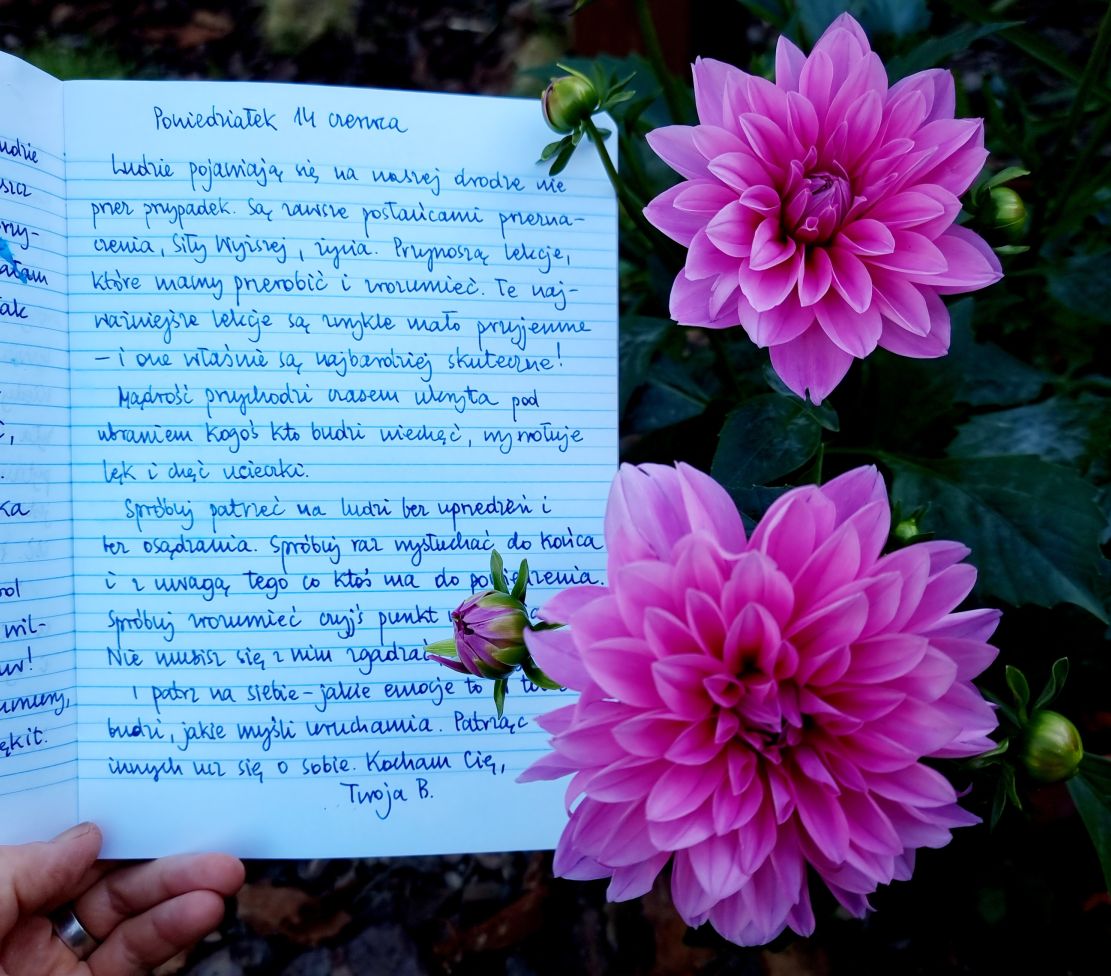 udzie
szcz
rzy-
ałam
tak
ć,
ka
rol
wil-
uw!
umiemy,
ękit.
Poniedziałek 14 czerwca
Ludzie pojawiają się na naszej drodze nie
przez przypadek. Są zawsze posłańcami przezna-
czenia, Siły Wyższej, życia. Przynoszą lekcje,
które mamy przerobić i zrozumieć. Te naj-
ważniejsze lekcje są zwykle mało przyjemne
– i one właśnie są najbardziej skuteczne!
Mądrość przychodzi czasem ukryta pod
ubraniem kogoś kto budzi niechęć, wywołuje
lęk i chęć ucieczki.
Spróbuj patrzeć na ludzi bez uprzedzeń i
bez osądzania. Spróbuj raz wysłuchać do końca
i z uwagą tego co ktoś ma do powiedzenia.
Spróbuj zrozumieć czyjś punkt
Nie musisz się z nim zgadzać
I patrz na siebie – jakie emocje to w
budzi, jakie myśli uruchamia. Patrząc
innych ucz się o sobie. Kocham Cię,
Twoja B.